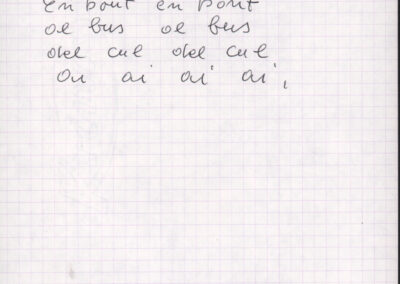 En bout en pont
oe bus oe bus
del cul del cul
Ou ai ai ai,